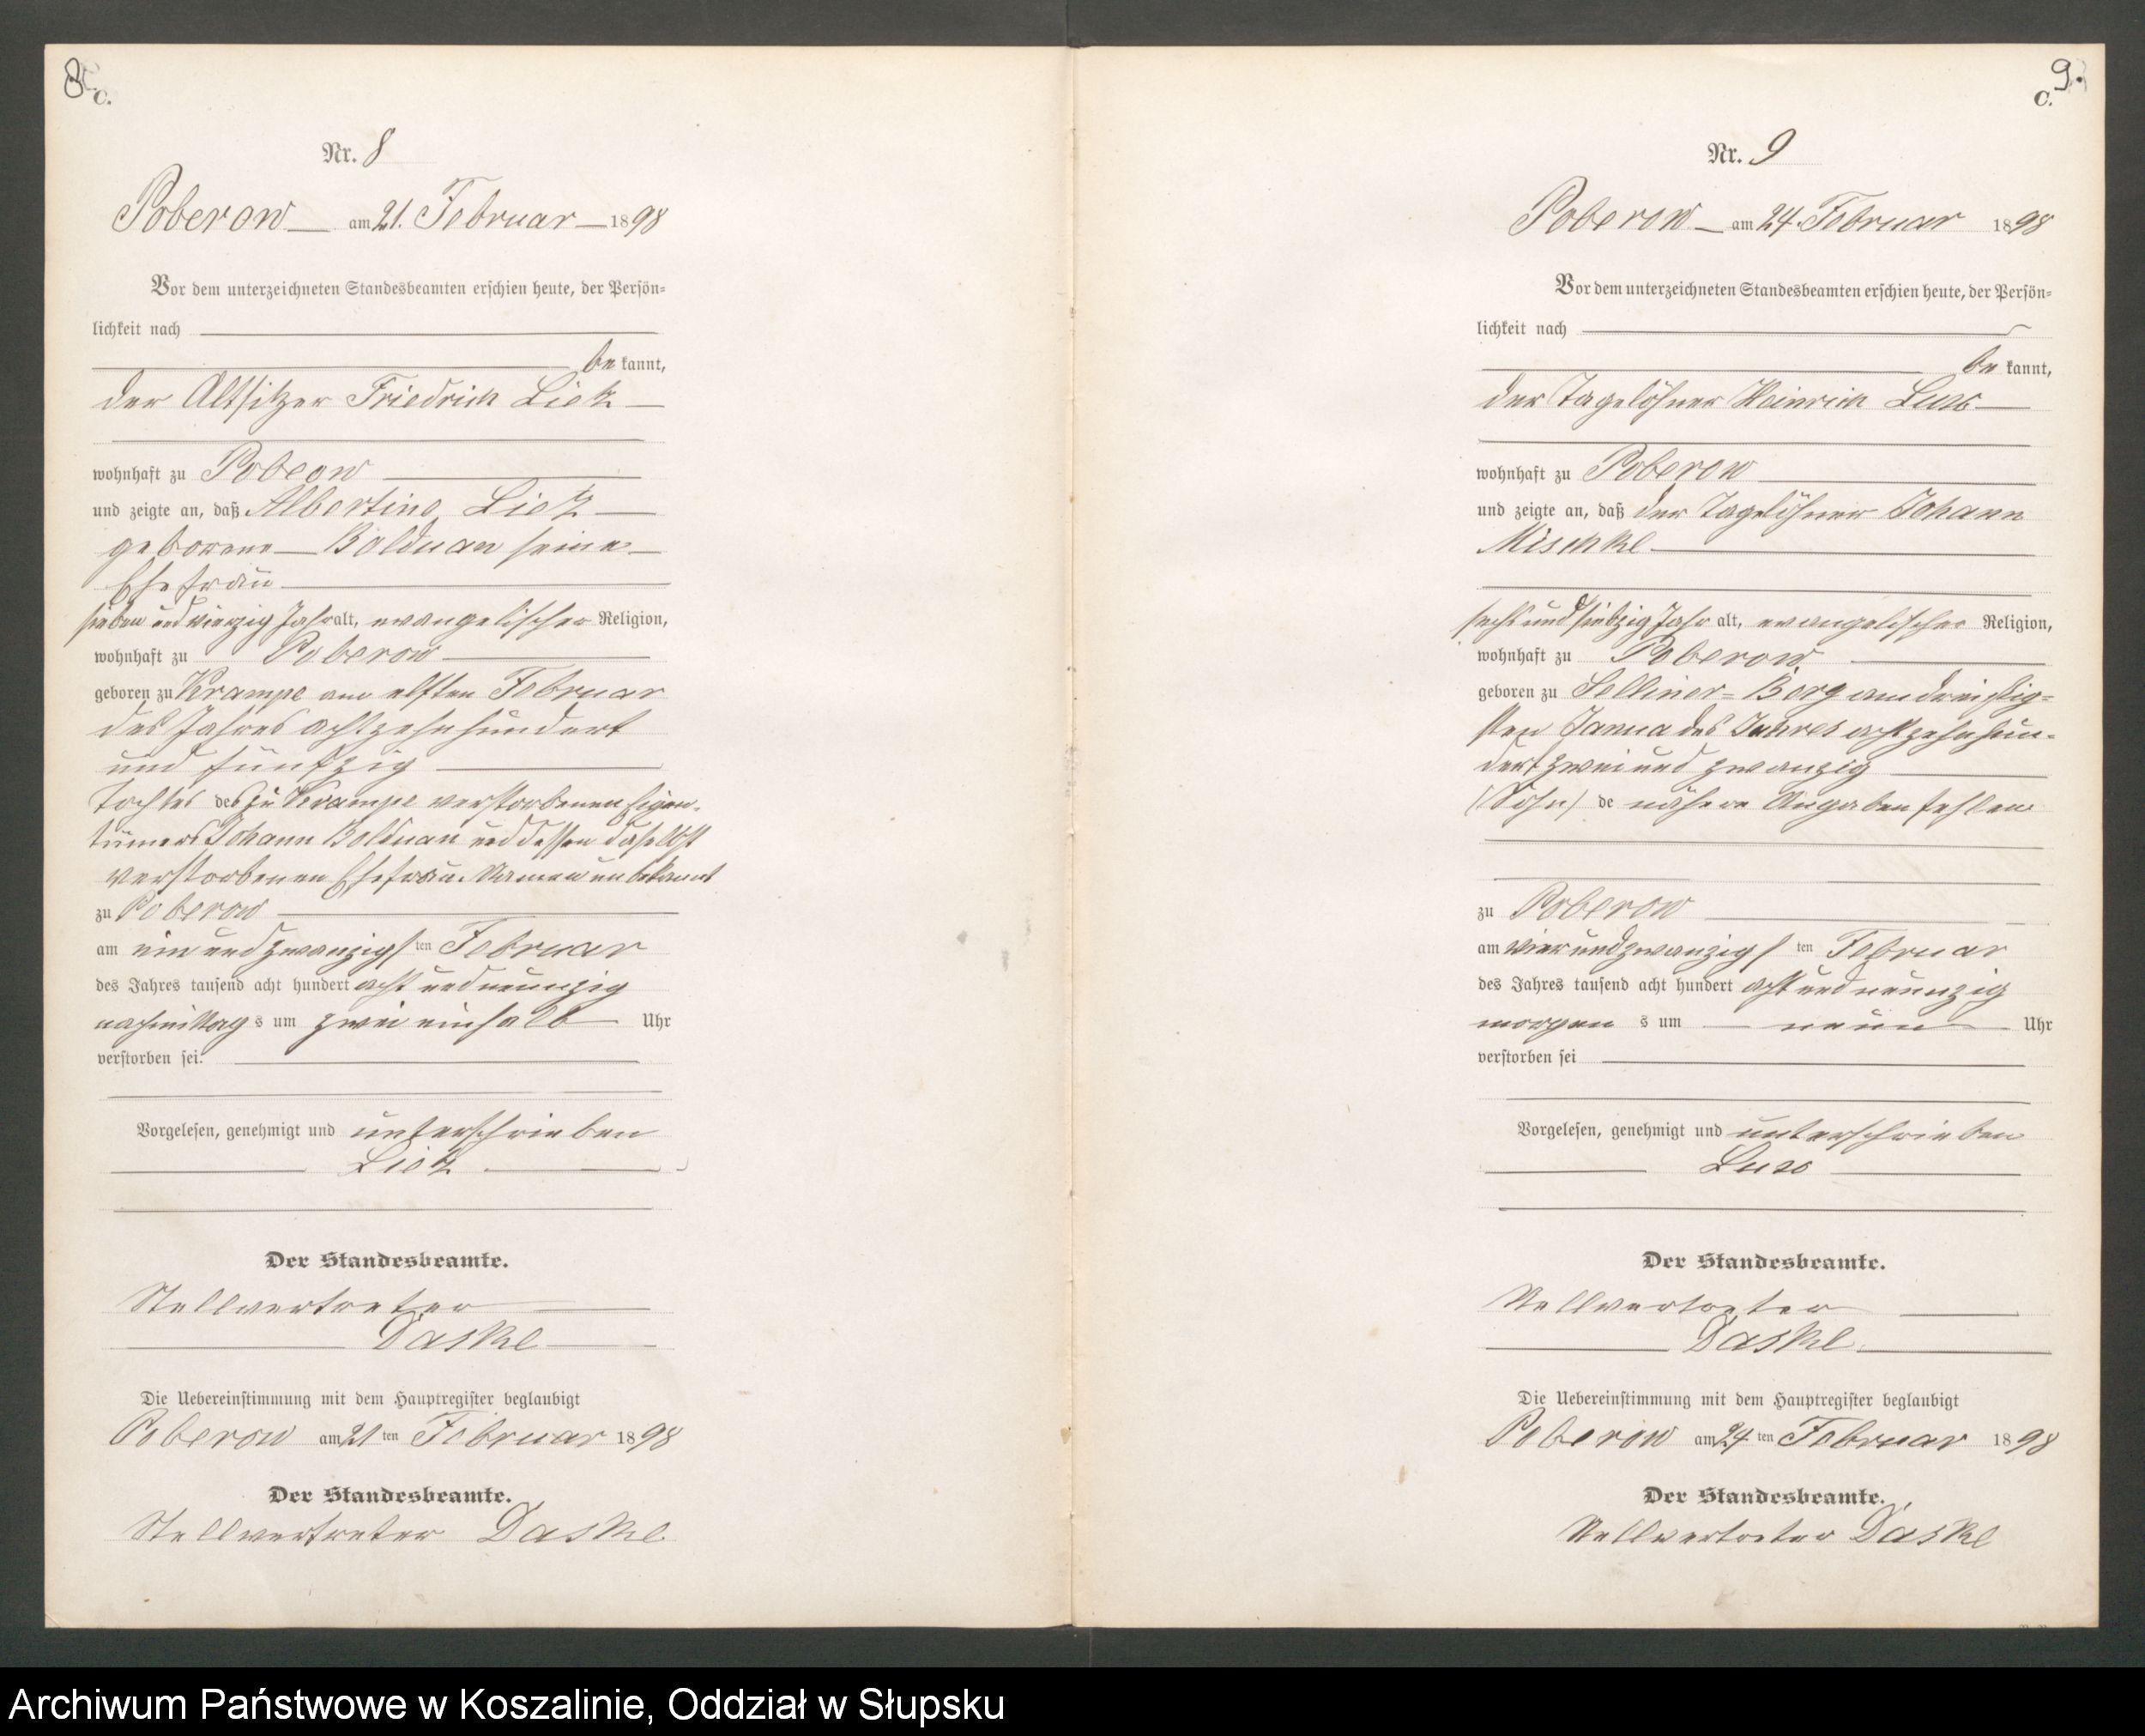 8
C.
Nr. 8
Poberow am 21. Februar 1898
Vor dem unterzeichneten Standesbeamten erschien heute, der Persön-
lichkeit nach
be kannt,
der Altsitzer Friedrich Lietz
wohnhaft zu Pobeow
und zeigte an, daß Albertine Lietz
geborene Balduan seine
Ehefrau
sieben und vierzig Jahr alt, evangelischer Religion,
wohnhaft zu Poberow
geboren zu Krampe am elften Februar
des Jahres achtzehnhundert
und fünfzig
Tochter des zu Krampe verstorbenen Eigen-
tümers Johann Balduan und dessen daselbst
verstorbenen Ehefrau. Namen unbekannt
zu Poberow
am ein und zwanzigsten Februar
des Jahres tausend acht hundert acht und neunzig
nachmittags um zwei einhalb Uhr
verstorben sei.
Vorgelesen, genehmigt und unterschrieben
Lietz
Der Standesbeamte.
Stellvertreter
Daske
Die Uebereinstimmung mit dem Hauptregister beglaubigt
Poberow am 21ten Februar 1898
Der Standesbeamte.
Stellvertreter Daske
9.
C.
Nr. 9
Poberow am 24. Februar 1898
Vor dem unterzeichneten Standesbeamten erschien heute, der Persön-
lichkeit nach
be kannt,
der Tagelöhner Heinrich
wohnhaft zu Poberow
und zeigte an, daß der Tagelöhner Johann
Mischke
sechs und siebzig Jahr alt, evangelischer Religion,
wohnhaft zu Poberow
geboren zu Selliner-Berg am dreißig-
sten Janua des Jahres achtzehnhun-
dert zwei und zwanzig
(Sohn) de nähere Angaben fehlen
zu Poberow
am vier und zwanzigsten Februar
des Jahres tausend acht hundert acht und neunzig
morgens um neun Uhr
verstorben sei
Vorgelesen, genehmigt und unterschrieben
Der Standesbeamte.
Stellvertreter
Daske
Die Uebereinstimmung mit dem Hauptregister beglaubigt
Poberow am 24ten Februar 1898
Der Standesbeamte.
Stellvertreter Daske
Archiwum Państwowe w Koszalinie, Oddział w Słupsku